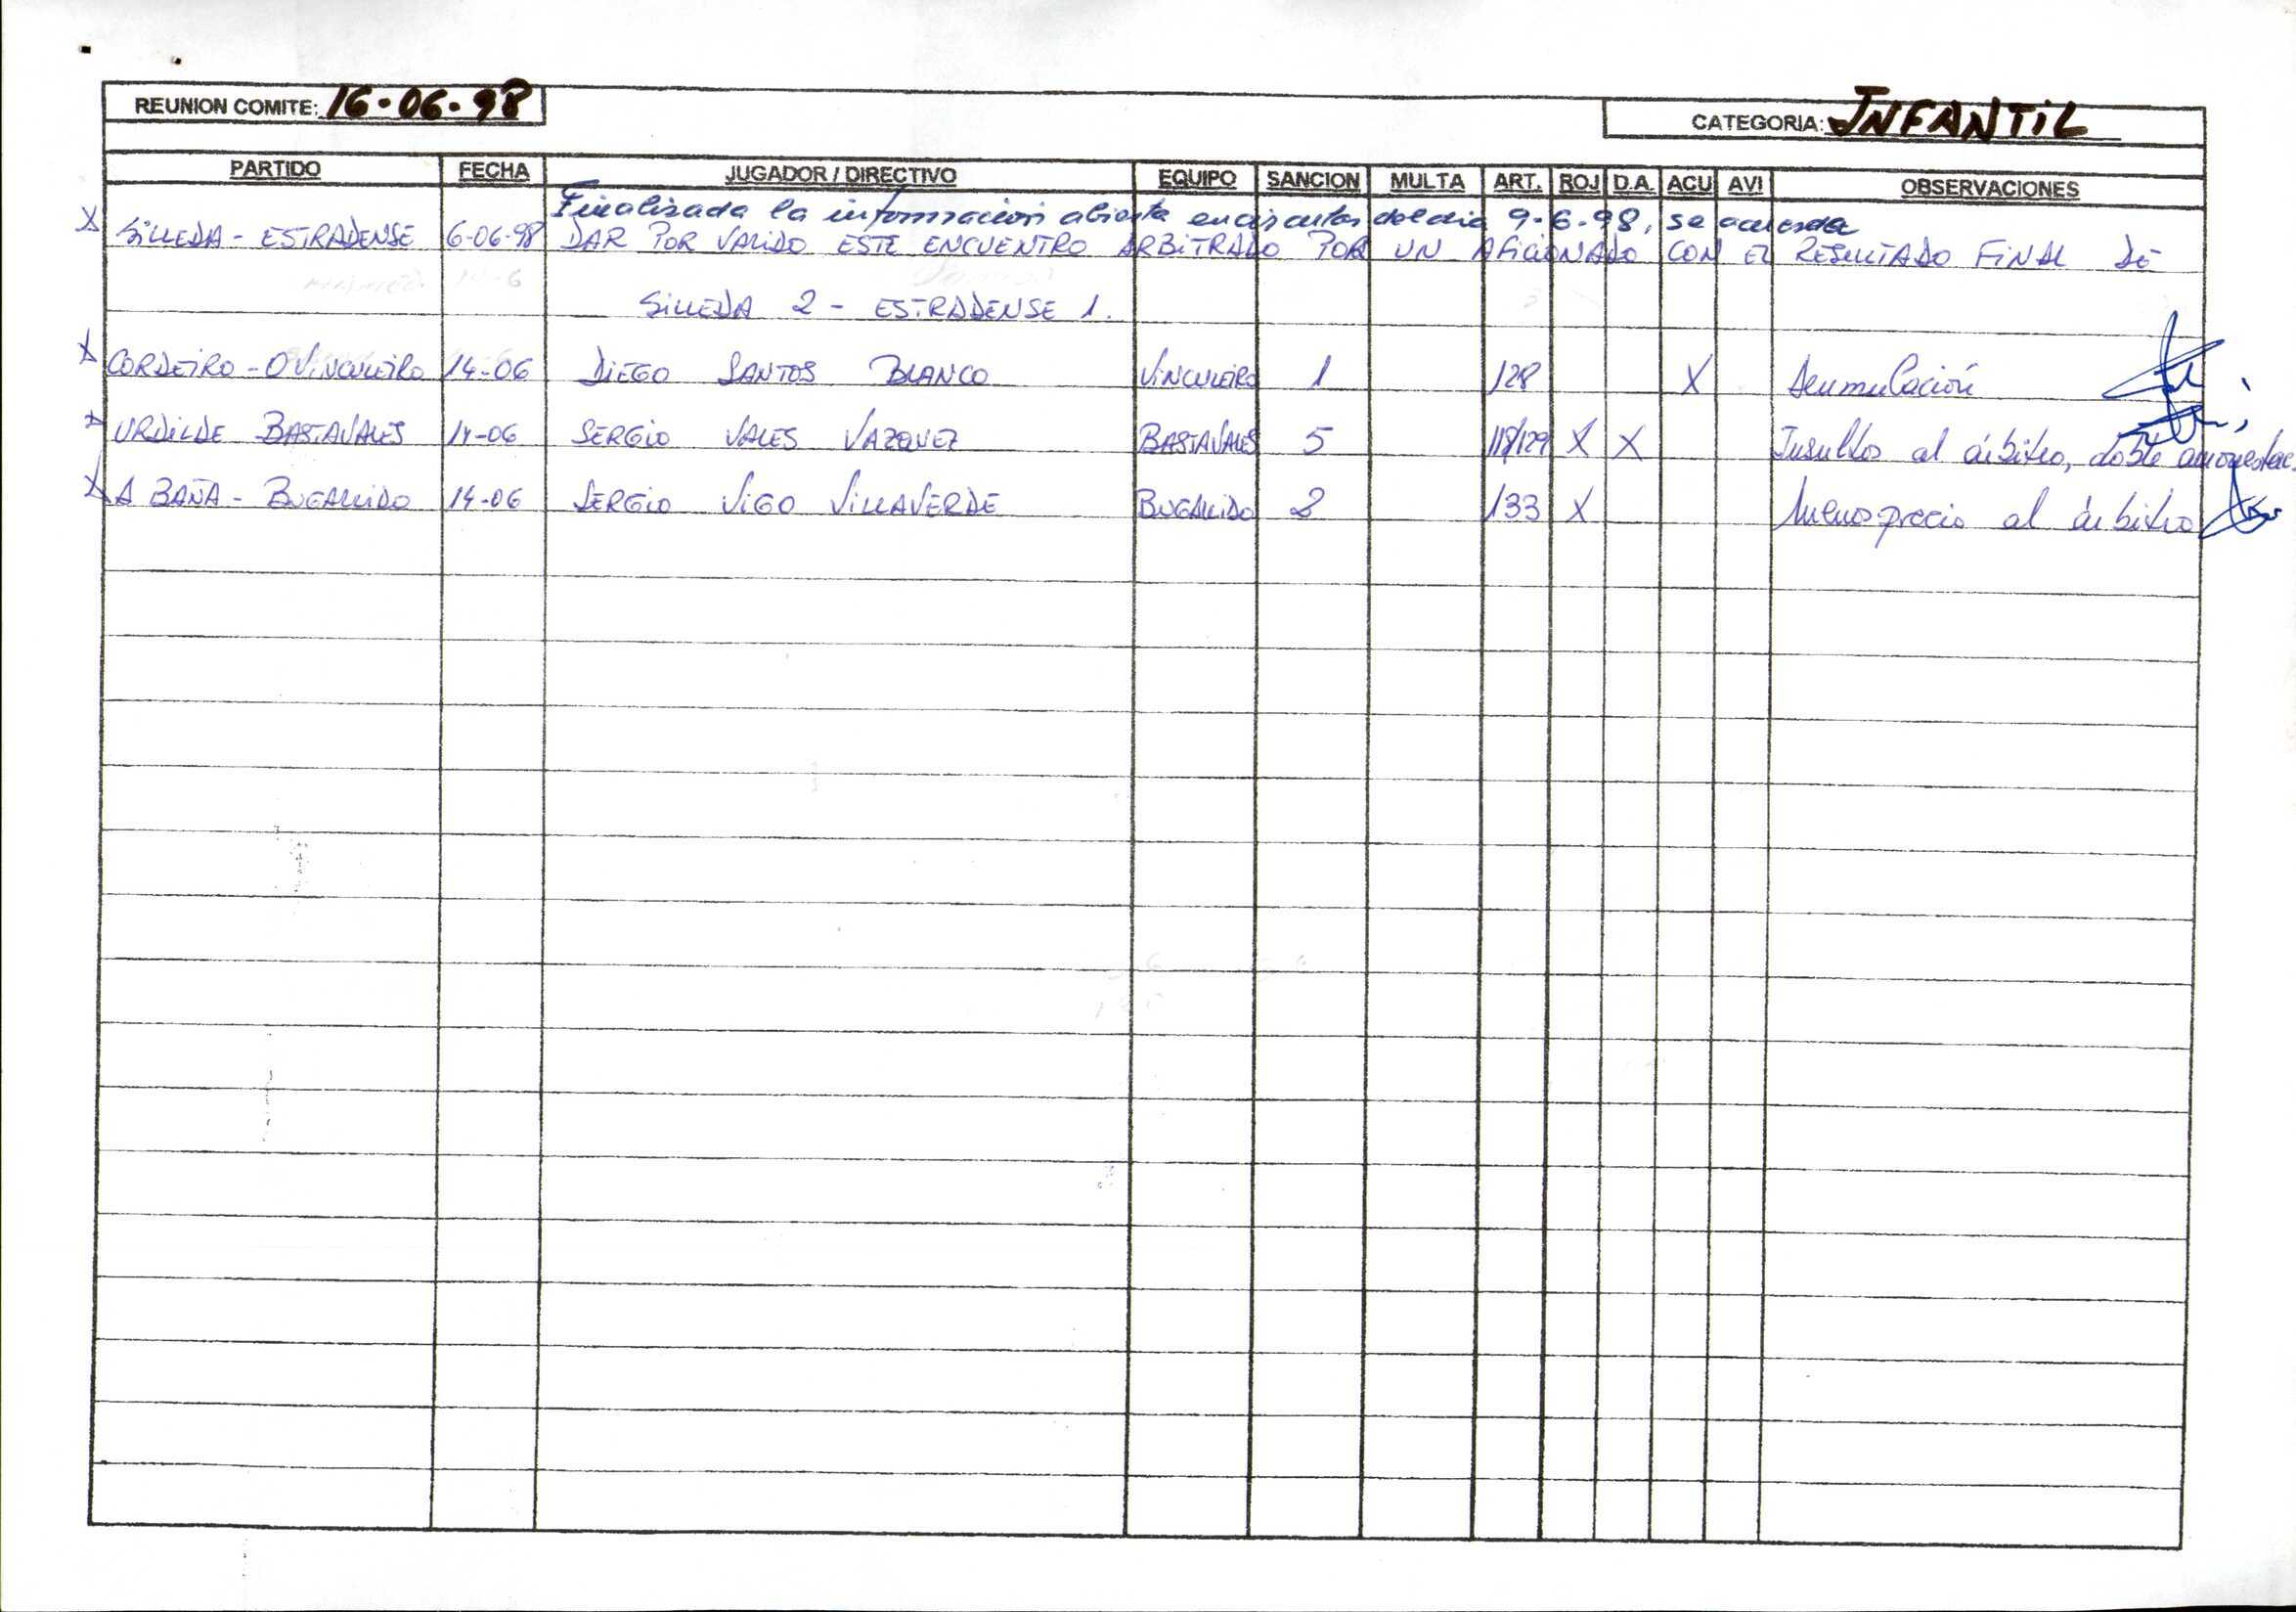 REUNION COMITE: 16-06-98
CATEGORIA: INFANTIL
PARTIDO FECHA JUGADOR / DIRECTIVO EQUIPO SANCION MULTA ART. ROJ D.A. ACU AVI OBSERVACIONES
Finalizada la información abierta en circular del dia 9-6-98, se acuerda
X SILLEDA - ESTRADENSE 6-06-98 DAR POR VALIDO ESTE ENCUENTRO ARBITRADO POR UN AFICIONADO CON EL RESULTADO FINAL DE
SILLEDA 2 - ESTRADENSE 1.
X CORDEIRO - O VINCULEIRO 14-06 DIEGO SANTOS BLANCO VINCULEIRO 1 128 X Acumulación
X URDILDE BASTAVALES 14-06 SERGIO VALES VAZQUEZ BASTAVALES 5 118/129 X X Insultos al árbitro, doble amonestac.
X A BAÑA - BUGALLIDO 14-06 SERGIO VIGO VILLAVERDE BUGALLIDO 2 133 X Menosprecio al árbitro